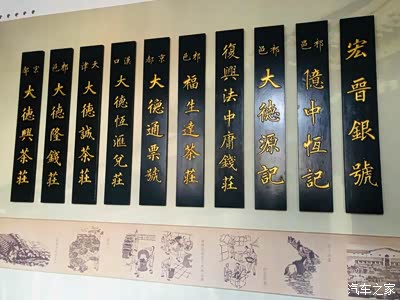 宏晉銀號
祁邑
億中恆記
祁邑
大德源記
復興法中庸錢莊
祁邑
福生達茶莊
京都
大德通票號
漢口
大德恆匯兌莊
天津
大德誠茶莊
祁邑
大德隆錢莊
京都
大德興茶莊
汽车之家